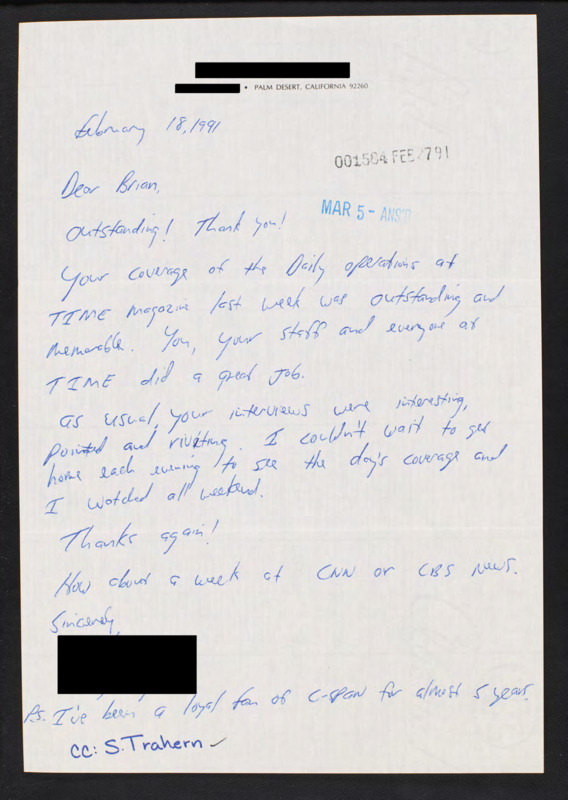 • PALM DESERT, CALIFORNIA 92260
February 18, 1991
001564 FEB 27 91
Dear Brian,
MAR 5 - ANS'D
Outstanding! Thank you!
Your coverage of the Daily operations at
TIME magazine last week was outstanding and
memorable. You, your staff and everyone at
TIME did a great job.
as usual, your interviews were interesting,
pointed and riviting. I couldn't wait to get
home each evening to see the day's coverage and
I watched all weekend.
Thanks again!
How about a week at CNN or CBS News.
Sincerely,
Ps. I've been a loyal fan of C-SPAN for almost 5 years.
cc: S. Trahern ✓